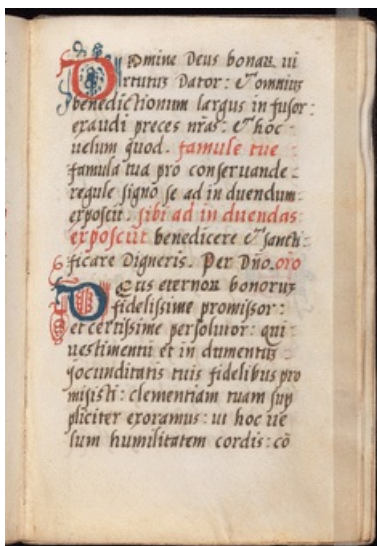 Domine Deus bonaꝝ ui
rtutuʒ Dator: & omniuʒ
benedictionum largus in fusor:
exaudi preces nr̃as: & hoc
uelum quod. famule tue
famula tua pro conseruande
regule signo se ad in duendum
exposcit. sibi ad in duendas
exposcũt benedicere & sancti
ficare Digneris. Per Dño. oro
Deus eternoꝝ bonoruʒ
fidelissime promissor:
et certissime persolutor: qui
uestimentũ et in dumentuʒ
jocunditatis tuis fidelibus pro
misisti: clementiam tuam sup
pliciter exoramus: ut hoc ue
lum humilitatem cordis: cõ